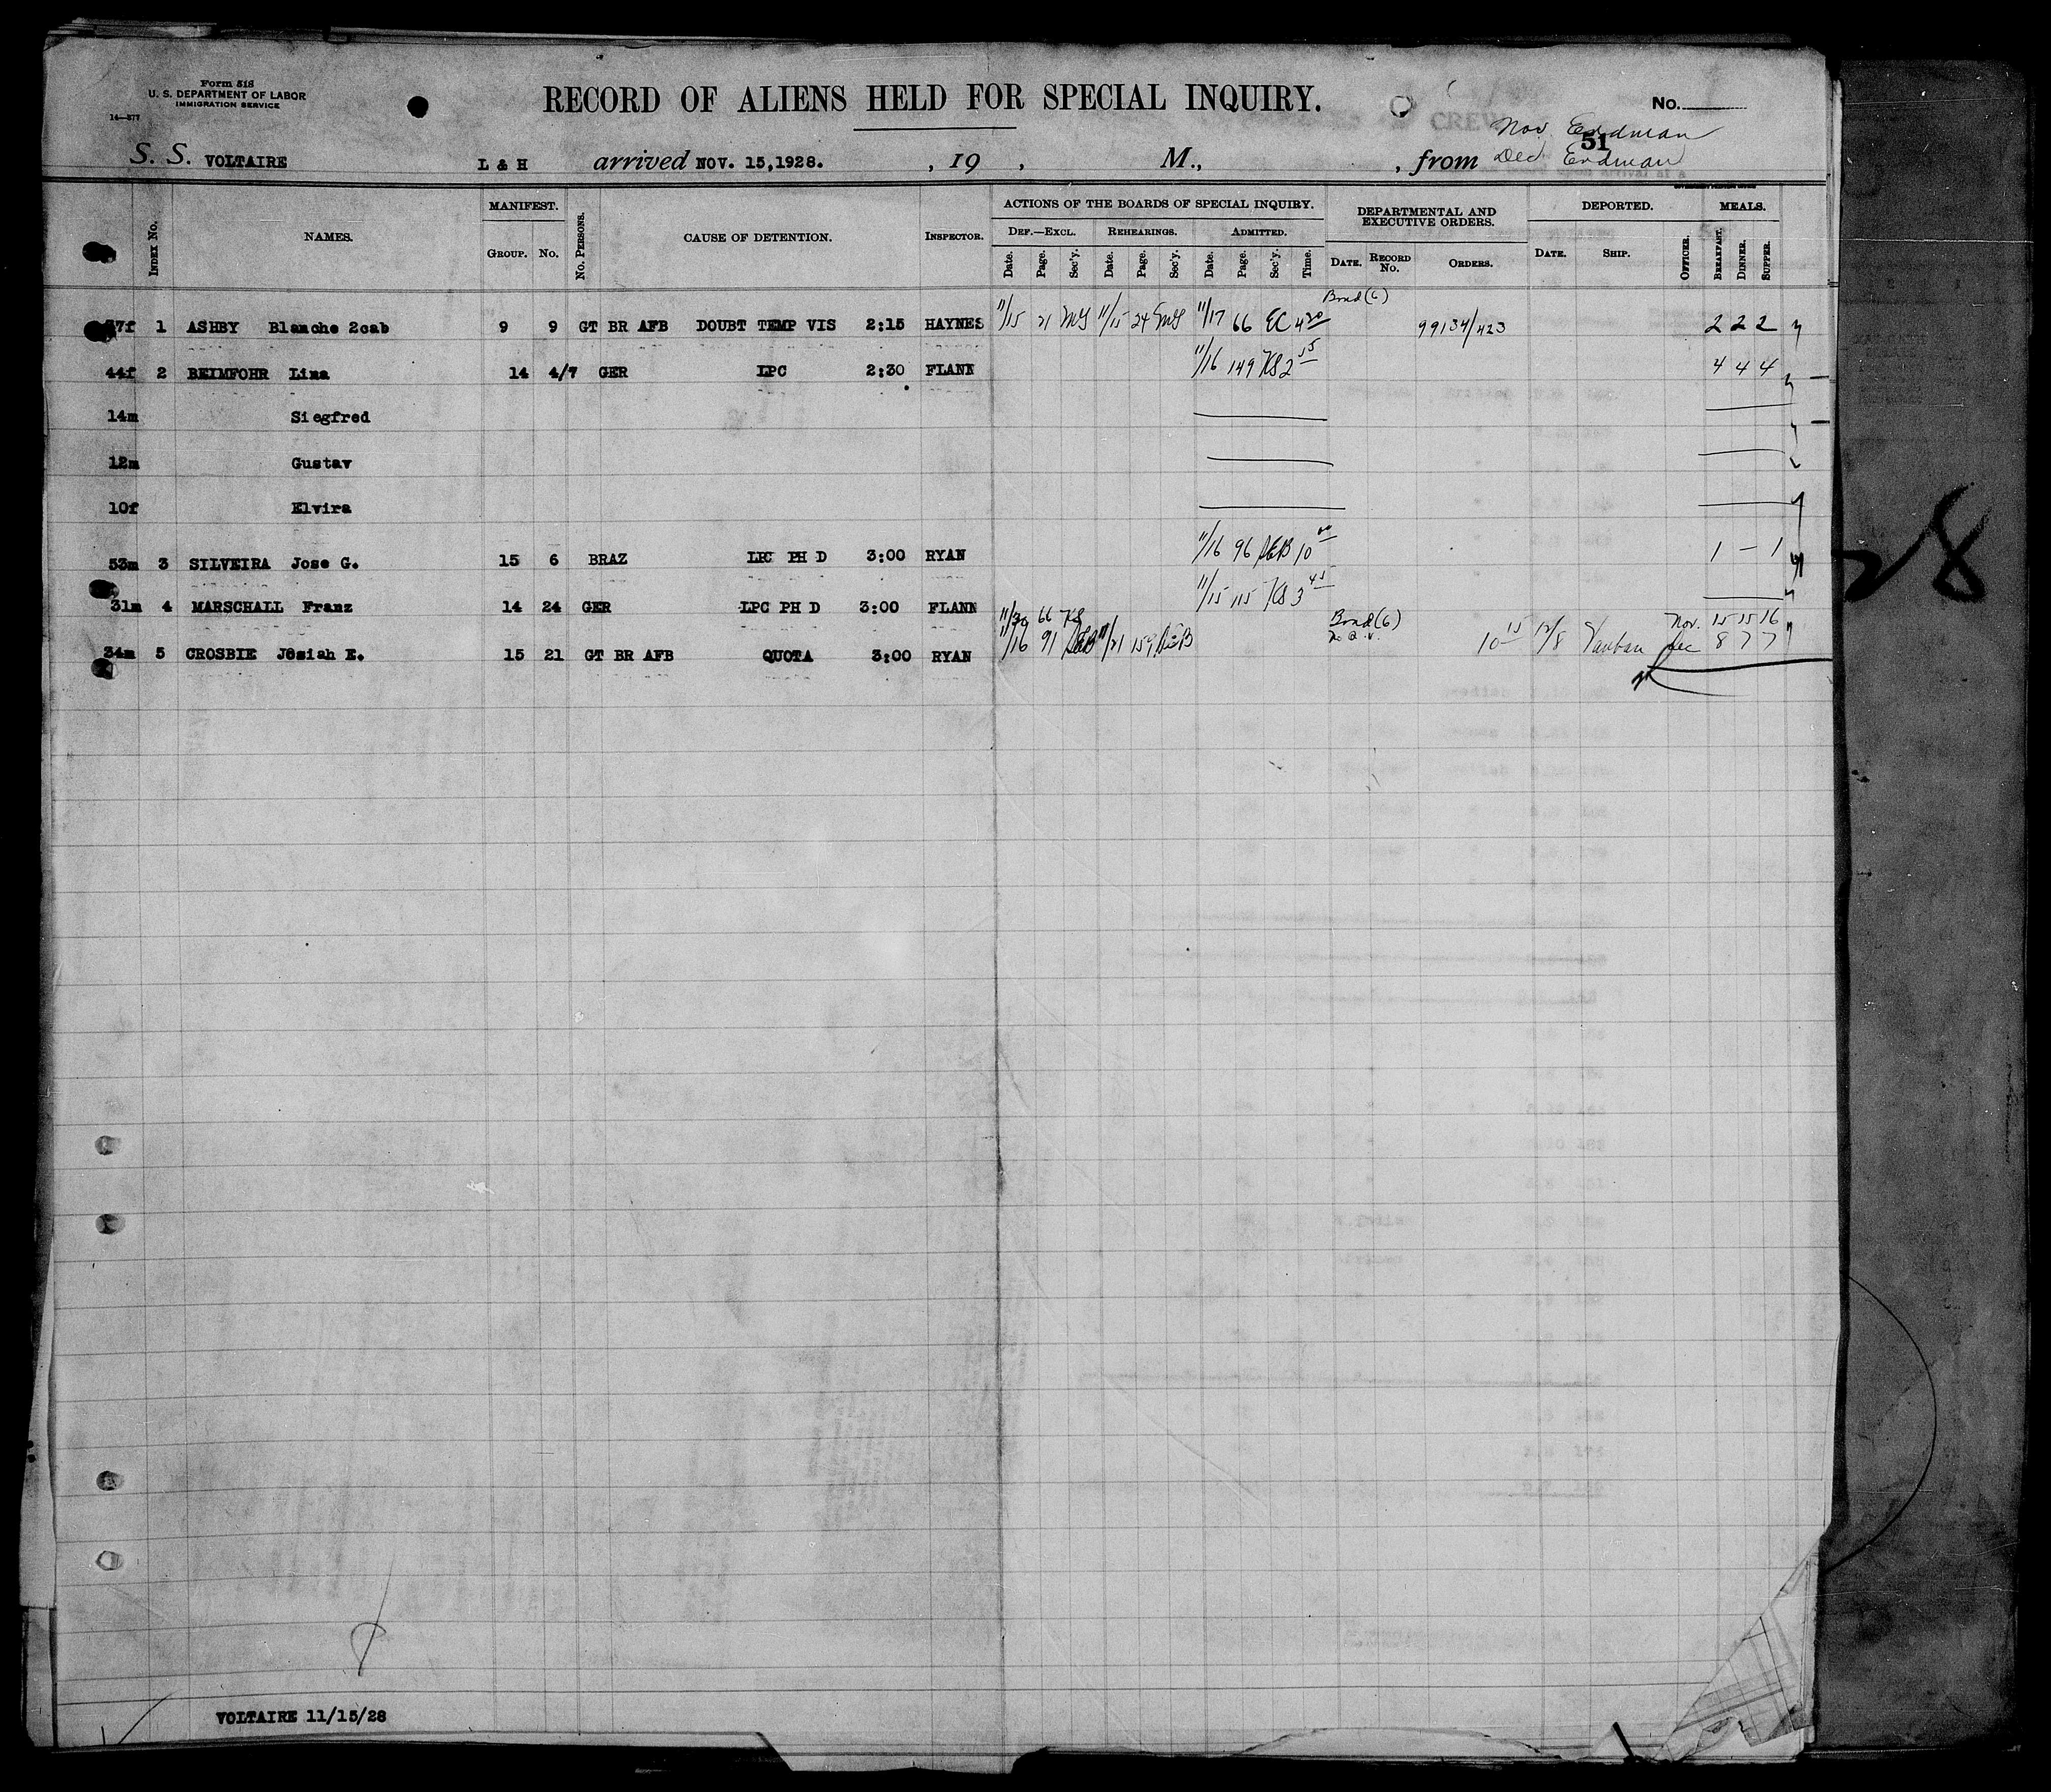 Form 518
U. S. DEPARTMENT OF LABOR
IMMIGRATION SERVICE
14—377
RECORD OF ALIENS HELD FOR SPECIAL INQUIRY.
No.
Nov. Erdman
51
S. S. VOLTAIRE L & H arrived NOV. 15,1928. , 19 , M., , from Dec. Erdman
INDEX NO. NAMES. MANIFEST. GROUP. NO. NO. PERSONS. CAUSE OF DETENTION. INSPECTOR. ACTIONS OF THE BOARDS OF SPECIAL INQUIRY. DEF.—EXCL. Date. Page. Sec'y. REHEARINGS. Date. Page. Sec'y. ADMITTED. Date. Page. Sec'y. Time. DEPARTMENTAL AND EXECUTIVE ORDERS. DATE. RECORD NO. ORDERS. DEPORTED. DATE. SHIP. OFFICER. MEALS. BREAKFAST. DINNER. SUPPER.
Bond (6)
7f 1 ASHBY Blanche 2cab 9 9 GT BR AFB DOUBT TEMP VIS 2:15 HAYNES 11/15 21 11/15 24 11/17 66 EC 4 20 99134/423 2 2 2
44f 2 BEIMFOHR Lina 14 4/7 GER LPC 2:30 FLANN 11/16 149 KS 2 55 4 4 4
14m Siegfred
12m Gustav
10f Elvira
53m 3 SILVEIRA Jose G. 15 6 BRAZ LPC PH D 3:00 RYAN 11/16 96 10 1 — 1
31m 4 MARSCHALL Franz 14 24 GER LPC PH D 3:00 FLANN 11/15 115 KS 3 45
11/30 66 KS Bond (6) Nov. 15 15 16
34m 5 CROSBIE Josiah E. 15 21 GT BR AFB QUOTA 3:00 RYAN 11/16 91 11/21 159 10 15 12/8 Vauban Dec 8 7 7
28
VOLTAIRE 11/15/28